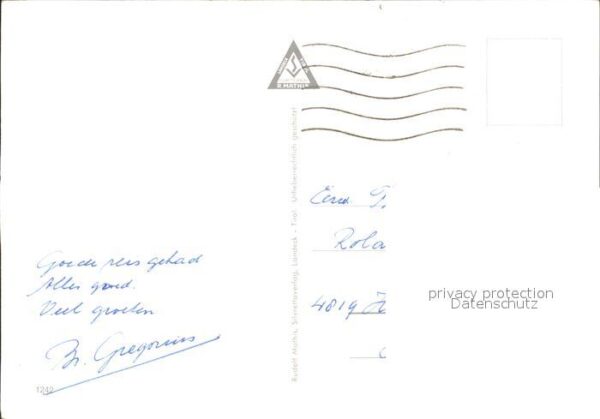 Goede reis gehad
Alles goed.
Veel groeten
Br. Gregorius
1242
R. MATHIS
Rudolf Mathis, Silvrettaverlag, Landeck - Tirol. Urheberrechtlich geschützt
4819
privacy protection
Datenschutz